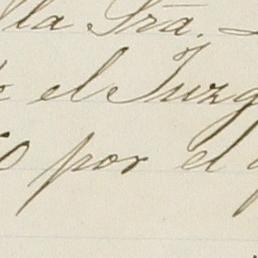 la Sra.
el Juzg
o por el